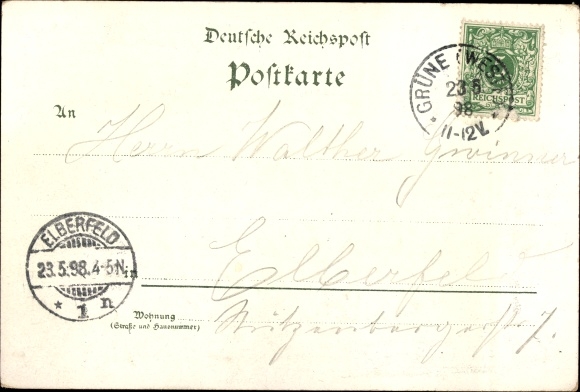 Deutsche Reichspost
Postkarte
GRÜNE (WESTF.)
23 5
98
11-12V.
REICHSPOST
An
Herrn Walther Gwinner
ELBERFELD
23.5.98.4-5N.
* 1 n
in
Elberfeld
Wohnung
(Straße und Hausnummer)
Stützenbergerstr 7.